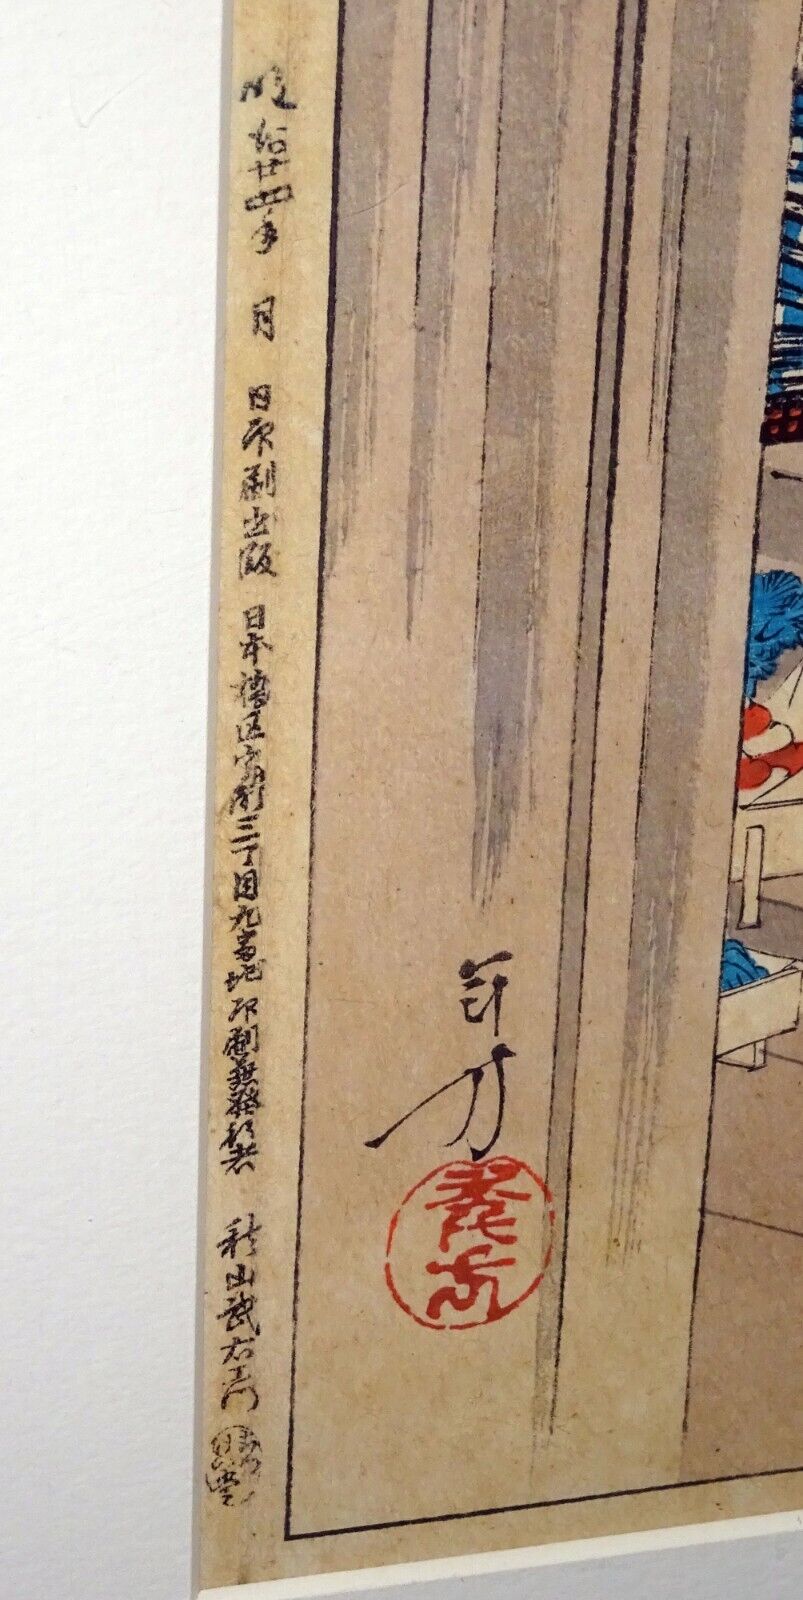 明治廿四年　月　日印刷出版　日本橋区室町三丁目九番地印刷兼発行者　秋山武右エ門
年方